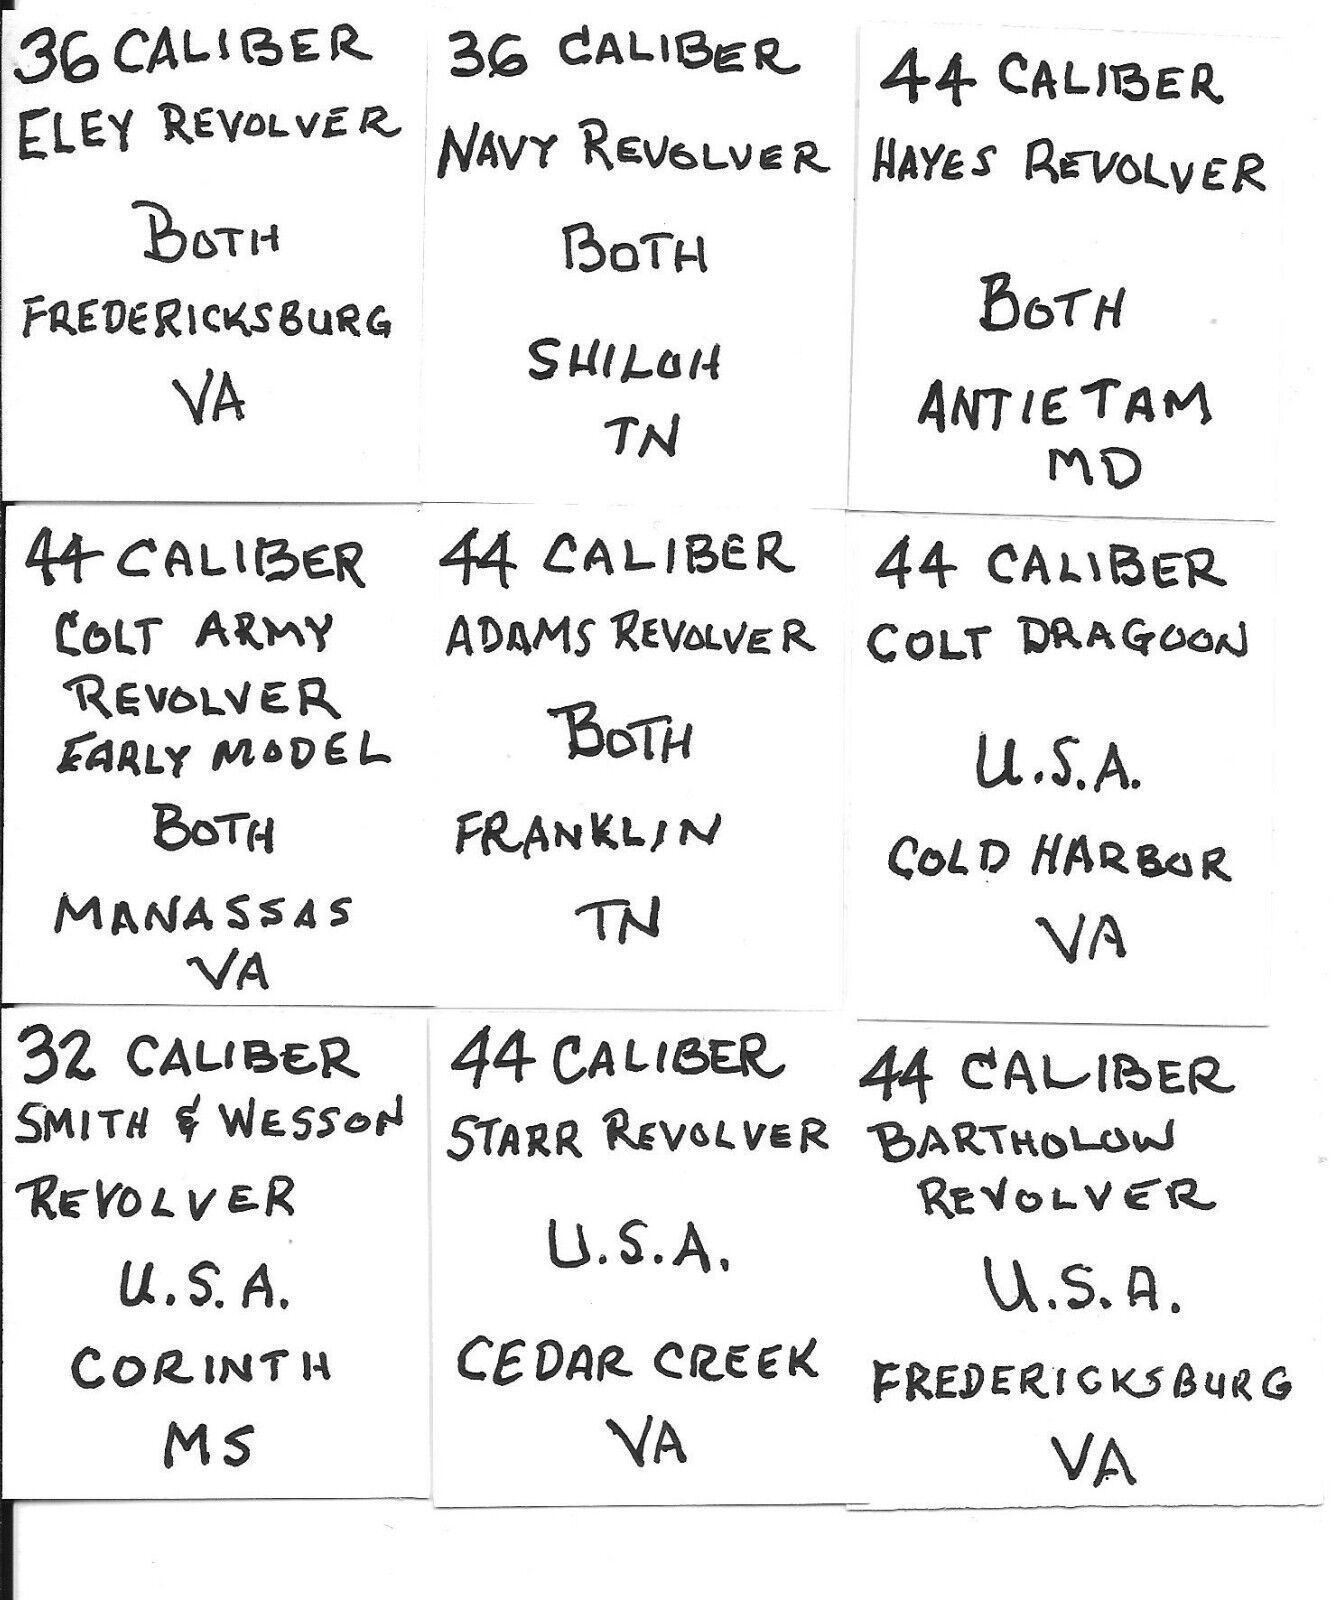 36 CALIBER
ELEY REVOLVER
BOTH
FREDERICKSBURG
VA
36 CALIBER
NAVY REVOLVER
BOTH
SHILOH
TN
44 CALIBER
HAYES REVOLVER
BOTH
ANTIETAM
MD
44 CALIBER
COLT ARMY
REVOLVER
EARLY MODEL
BOTH
MANASSAS
VA
44 CALIBER
ADAMS REVOLVER
BOTH
FRANKLIN
TN
44 CALIBER
COLT DRAGOON
U.S.A.
COLD HARBOR
VA
32 CALIBER
SMITH & WESSON
REVOLVER
U.S.A.
CORINTH
MS
44 CALIBER
STARR REVOLVER
U.S.A.
CEDAR CREEK
VA
44 CALIBER
BARTHOLOW
REVOLVER
U.S.A.
FREDERICKSBURG
VA